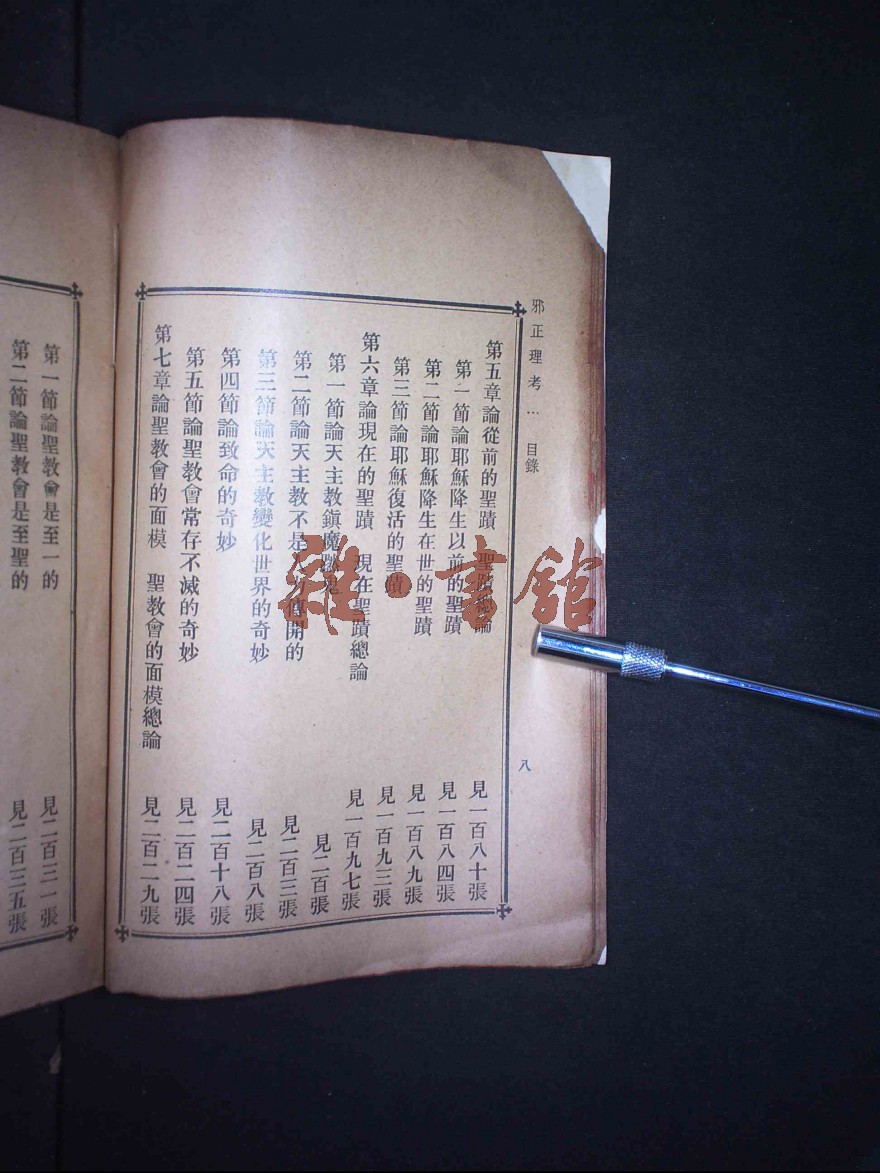 邪正理考 … 目錄 八
第五章論從前的聖蹟 聖蹟總論 見一百八十張
第一節論耶穌降生以前的聖蹟 見一百八四張
第二節論耶穌降生在世的聖蹟 見一百八九張
第三節論耶穌復活的聖蹟 見一百九三張
第六章論現在的聖蹟 現在聖蹟總論 見一百九七張
第一節論天主教鎮魔 見二百張
第二節論天主教不是人力傳開的 見二百三張
第三節論天主教變化世界的奇妙 見二百八張
第四節論致命的奇妙 見二百十八張
第五節論聖教會常存不滅的奇妙 見二百二四張
第七章論聖教會的面模 聖教會的面模總論 見二百二九張
第一節論聖教會是至一的 見二百三一張
第二節論聖教會是至聖的 見二百三五張
雜·書館